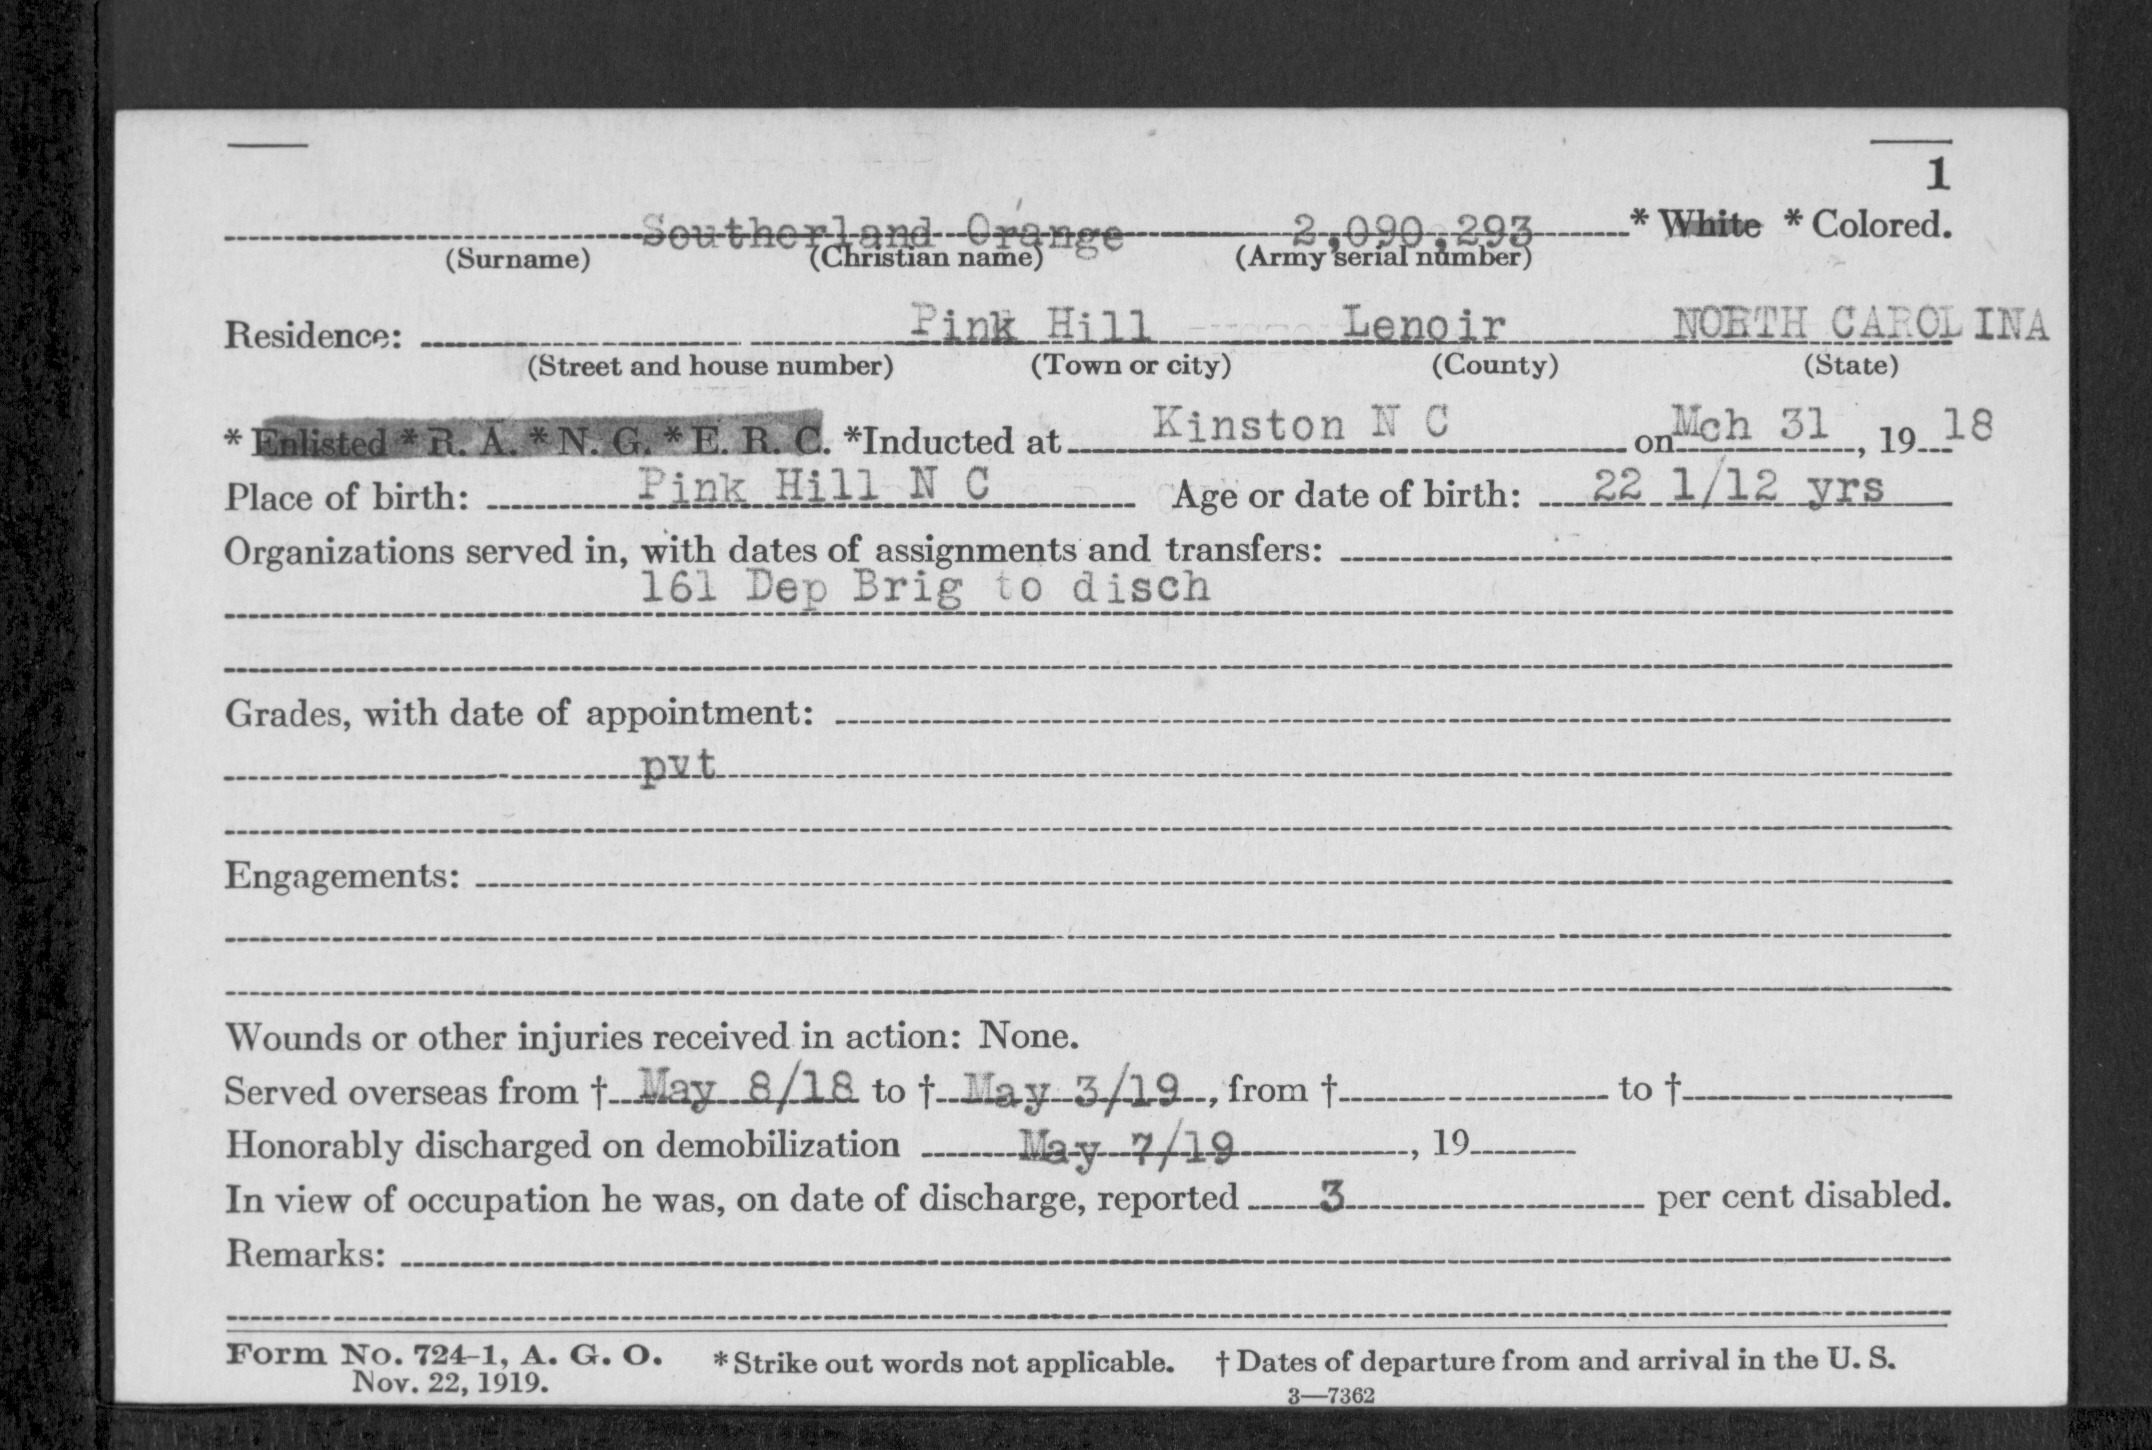 1
Southerland Orange 2,090,293 * White * Colored.
(Surname) (Christian name) (Army serial number)
Residence: Pink Hill Lenoir NORTH CAROLINA
(Street and house number) (Town or city) (County) (State)
* Enlisted * R. A. * N. G. * E. R. C. *Inducted at Kinston N C on Mch 31, 19 18
Place of birth: Pink Hill N C Age or date of birth: 22 1/12 yrs
Organizations served in, with dates of assignments and transfers:
161 Dep Brig to disch
Grades, with date of appointment:
pvt
Engagements:
Wounds or other injuries received in action: None.
Served overseas from † May 8/18 to † May 3/19, from † to †
Honorably discharged on demobilization May 7/19, 19
In view of occupation he was, on date of discharge, reported 3 per cent disabled.
Remarks:
Form No. 724-1, A. G. O. * Strike out words not applicable. † Dates of departure from and arrival in the U. S.
Nov. 22, 1919. 3—7362